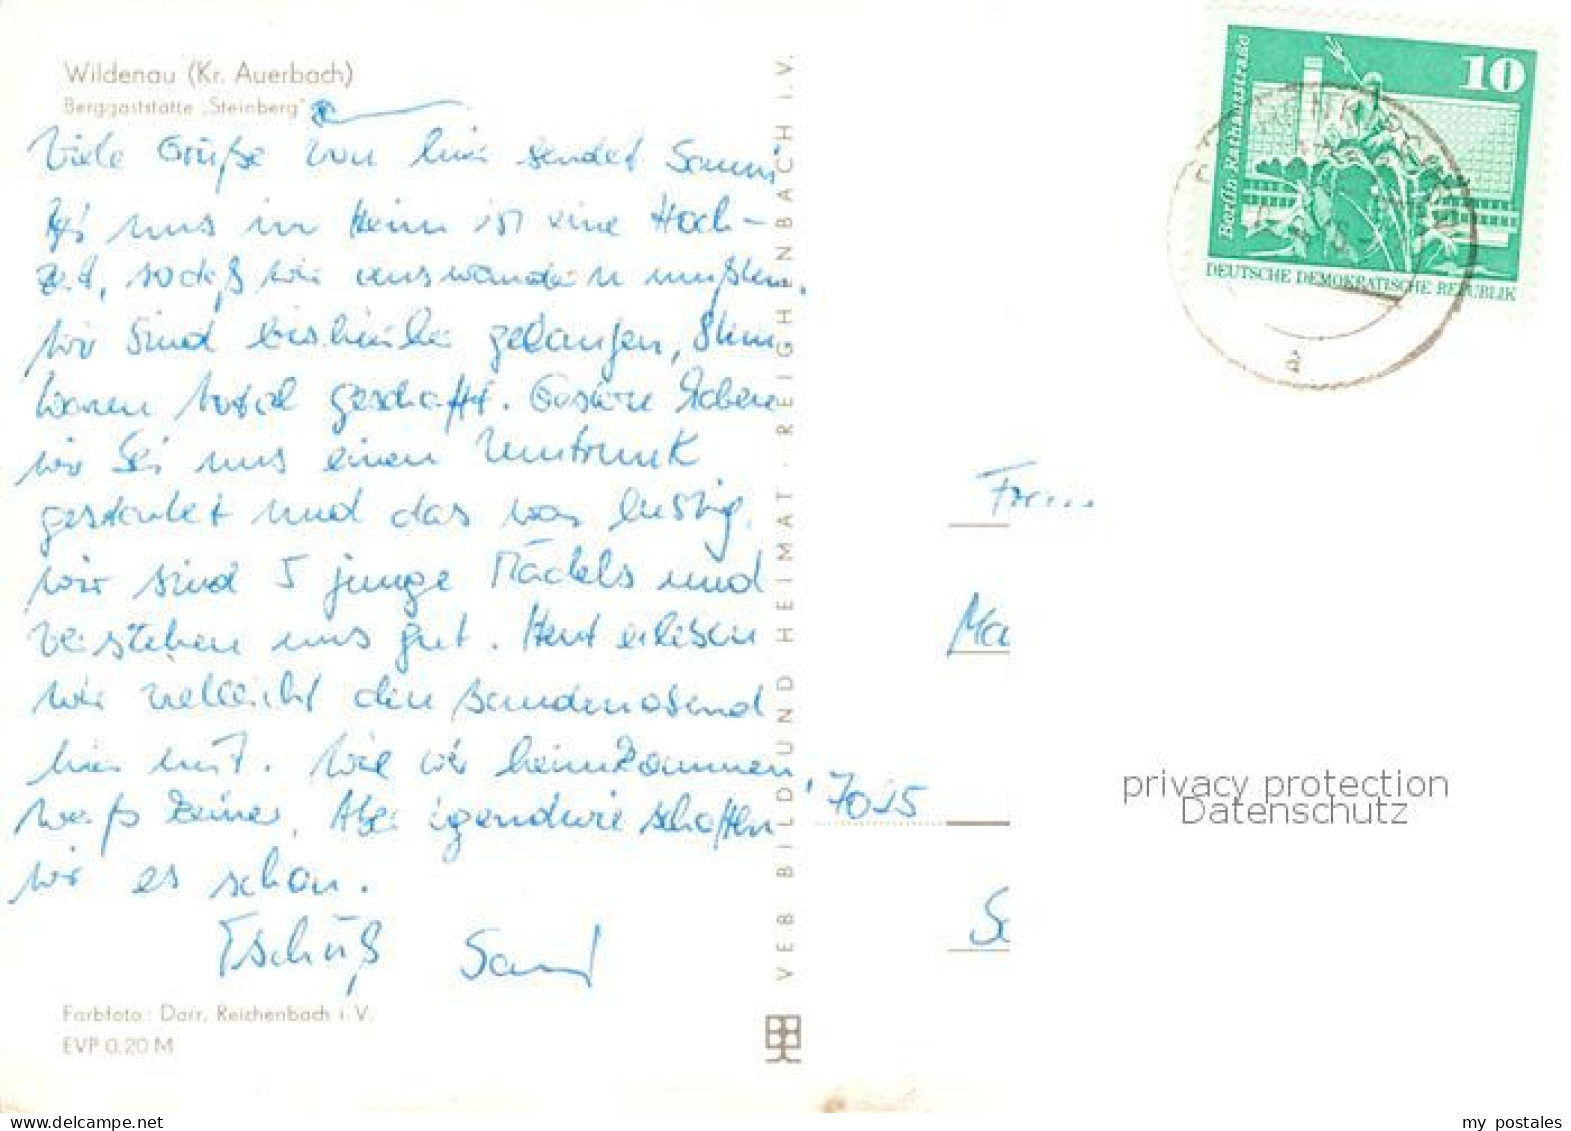 Wildenau (Kr. Auerbach)
Berggaststätte „Steinberg"
Viele Grüße von hier sendet
Bei uns im Heim ist eine Hoch-
zeit, sodaß wir auswandern mußten.
Wir sind bis hierher gelaufen,
waren total geschafft. Gestern haben
wir bei uns einen Umtrunk
gestartet und das war lustig.
Wir sind 5 junge Mädels und
verstehen uns gut. Heut erleben
wir vielleicht den
hier mit. Wie wir heimkommen,
weiß keiner. Aber irgendwie schaffen
wir es schon.
Tschüß
Farbfoto: Darr, Reichenbach i. V.
EVP 0.20 M
VEB BILD UND HEIMAT · REICHENBACH I. V.
10
Berlin, Rathausstraße
DEUTSCHE DEMOKRATISCHE REPUBLIK
a
Ma
7025
privacy protection
Datenschutz
delcampe.net
my_postales